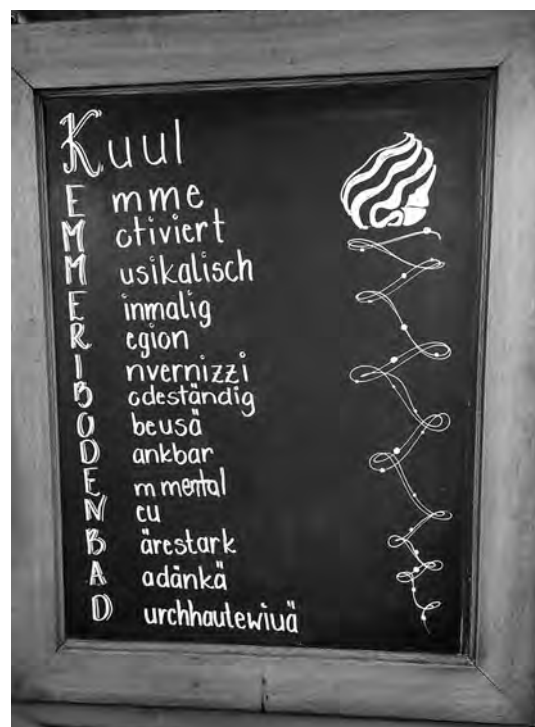 Kuul
E mme
M otiviert
M usikalisch
E inmalig
R egion
I nvernizzi
B odeständig
O beusä
D ankbar
E mmental
N eu
B ärestark
A adänkä
D urchhautewiuä